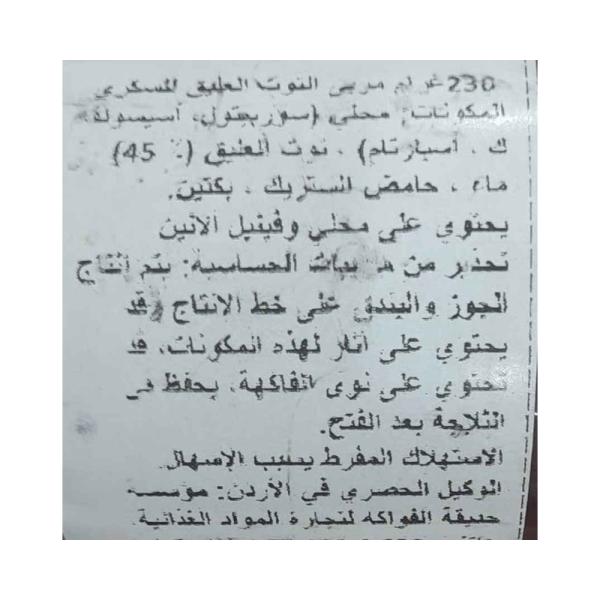 230 غرام مربى التوت العليق للسكري
المكونات: محلي (سوربيتول، أسيسولفام
ك ، أسبارتام) ، توت العليق (45 ٪)
ماء ، حامض الستريك ، بكتين.
يحتوي على محلي وفينيل الانين
تحذير من مسببات الحساسية: يتم انتاج
الجوز والبندق على خط الانتاج وقد
يحتوي على آثار لهذه المكونات، قد
تحتوي على نوى الفاكهة، يحفظ في
الثلاجة بعد الفتح.
الاستهلاك المفرط يسبب الإسهال
الوكيل الحصري في الأردن: مؤسسة
حديقة الفواكه لتجارة المواد الغذائية